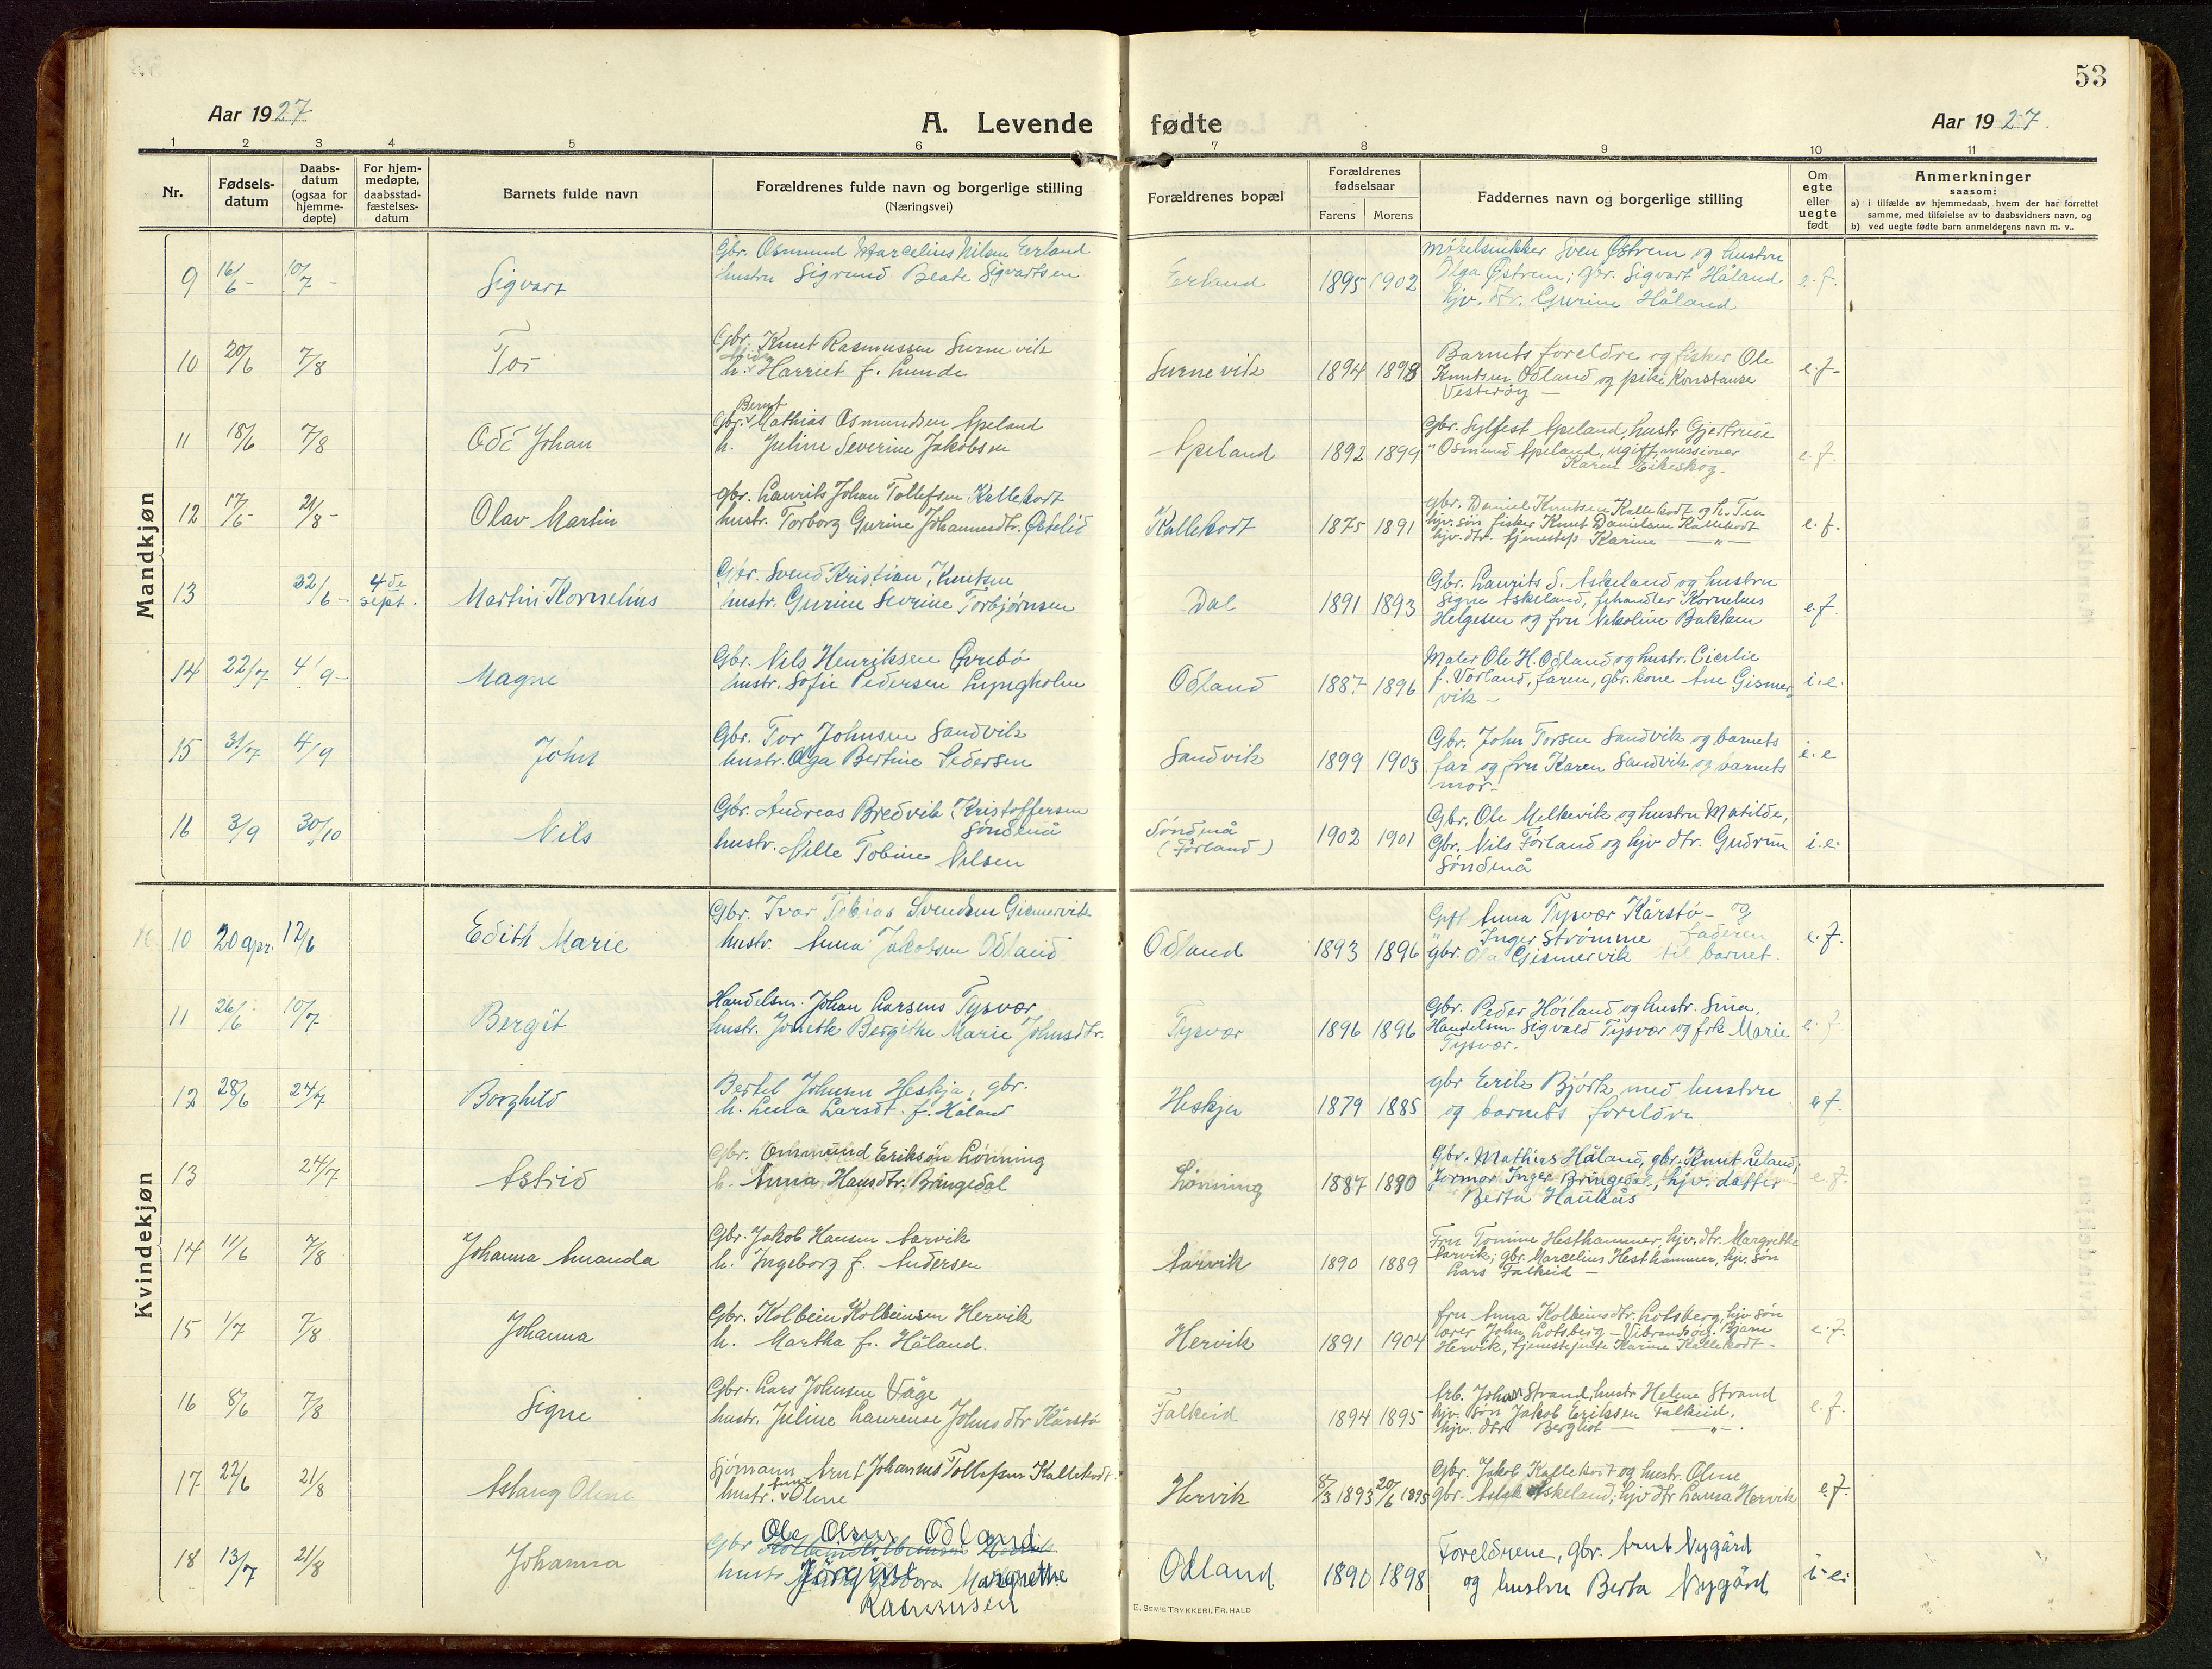 53
Aar 1927
A. Levende fødte
Aar 1927.
1 2 3 4 5 6 7 8 9 10 11
Nr.
Fødsels-
datum
Daabs-
datum
(ogsaa for
hjemme-
døpte)
For hjem-
medøpte,
daabsstad-
fæstelses-
datum
Barnets fulde navn
Forældrenes fulde navn og borgerlige stilling
(Næringsvei)
Forældrenes bopæl
Forældrenes
fødselsaar
Farens Morens
Faddernes navn og borgerlige stilling
Om
egte
eller
uegte
født
Anmerkninger
saasom:
a) i tilfælde av hjemmedaab, hvem der har forrettet
samme, med tilføielse av to daabsvidners navn, og
b) ved uegte fødte barn anmelderens navn m. v..
Mandkjøn
9 16/6- 10/7 - Sigvart
Gbr. Osmund Marcelius Nilsen Erland
hustru Sigrund Beate Sigvartsen
Erland 1895 1902
Møbelsnikker Sven Østrem og hustru
Olga Østrem; gbr. Sigvart Håland
hjv. dtr. Gurine Håland
e. f.
10 20/6 7/8 Tor
Gbr. Knut Rasmussen Surnevik
h. Harriet f. Lunde
Surnevik 1894 1898
Barnets foreldre og fisker Ole
Knutsen Odland og pike Konstanse
Vesterøy -
e. f-
11 18/6 7/8 Odd Johan
Bernt
Gbr. Mathias Osmundsen Apeland
h. Juline Severine Jakobsen
Apeland 1892 1899
Gbr. Sylfest Apeland, hustr Gjertrud
" Osmund Apeland, ugift, missionær
Karen Eikeskog.
e. f.
12 17/6- 21/8- Olav Martin
gbr. Laurits Johan Tollefsen Kallekodt
hustr. Torborg Gurine Johannesdtr. Østelid
Kallekodt 1875 1891
gbr. Daniel Knutsen Kallekodt og h. Tea
hjv. søn fisker Knut Danielsen Kallekodt
hjv. dtr. tjenestep Karine — " —
e. f.
13 22/6- 4de sept. Martin Kornelius
Gbr. Svend Kristian Knutsen
hustr. Gurine Sevrine Torbjørnsen
Dal 1891 1893
Gbr. Laurits S. Askeland og hustru
Signe Askeland, fehandler Kornelius
Helgesen og fru Nikoline Bakken
e. f.
14 22/7 4/9- Magne
Gbr. Nils Henriksen Øvrebø
hustr. Sofie Pedersen Lyngholm
Odland 1887 1896
Maler Ole H. Odland og hustr. Cicilie
f. Vorland, faren, gbr. kone Ane Gismer-
vik -
i. e.
15 31/7 4/9 John
Gbr. Tor Johnsen Sandvik
hustr. Olga Bertine Pedersen
Sandvik 1899 1903
Gbr. John Torsen Sandvik og barnets
far og fru Karen Sandvik og barnets
mor-
i. e
16 3/9 30/10 Nils
Gbr. Andreas Bredvik Kristoffersen
Søndenå
hustr. Nille Tobine Nilsen
Søndenå
(Førland) 1902 1901
Gbr. Ole Melkevik og hustru Matilde,
Gbr. Nils Førland og hjv dtr. Gudrun
Søndenå
i. e.
Kvindekjøn
10 20 apr. 12/6 Edith Marie
Gbr. Ivar Tobias Svendsen Gismervik
hustr. Anna Jakobsen Odland
Odland 1893 1896
Gift Anna Tysvær Kårstø - og
" Inger Strømme faderen
gbr. Ola Gismervik til barnet.
e. f.
11 26/6 10/7 Bergit
Handelsm. Johan Larsens Tysvær
hustr. Jonette Bergithe Marie Johnsdtr.
Tysvær 1896 1896
Gbr. Peder Høiland og hustr. Sina,
Handelsm Sigvald Tysvær og frk Marie
Tysvær.
e. f.
12 28/6 24/7 Borghild
Bertel Johnsen Heskja, gbr.
h. Lena Larsdt. f. Håland
Heskja 1879 1885
gbr Erik Bjørk med hustru
og barnets foreldre.
e f.
13 24/7 Astrid
Gbr. Ommund Eriksøn Lønning
h. Anna Hansdtr. Bringedal
Lønning 1887 1890
Gbr. Mathias Håland, gbr. Knut Leland,
Jormor Inger Bringedal, hjv. datter
Berta Haukås
e. f.
14 11/6 7/8 Johanna Amanda
Gbr. Jakob Hansen Aarvik
h. Ingeborg f. Andersen
Aarvik 1890 1889
Fru Tomine Hesthammer, hjv. dtr. Margrethe
Aarvik; gbr. Marcelius Hesthammer, hjv. søn
Lars Falkeid -
15 1/7 7/8 Johanna
Gbr. Kolbein Kolbeinsen Hervik
h. Martha f. Håland
Hervik 1891 1904
fru Anna Kolbeinsdtr. Lotsberg, hjv søn
lærer John Lotsberg - Vibrandsøy. Bjarne
Hervik, tjenestejente Karine Kallekodt -
e. f.
16 8/6 7/8 Signe
Gbr. Lars Johnsen Våge
hustr. Juline Laurense Johnsdtr Kårstø
Falkeid 1894 1895
Arb. Johan Strand, hustr Helene Strand
hjv. søn Jakob Eriksen Falkeid,
hjv. dtr Bergliot — " — .
e. f.
17 22/6 21/8 Aslaug Oline
Sjømann Arnt Johannes Tollefsen Kallekodt
hustr. Oline
Hervik 8/3 1893 20/6 1895
Gbr. Jakob Kallekodt og hustr. Oline
gbr. Aslak Askeland; hjv dtr Laura Hervik
e. f.
18 13/7 21/8 Johanna
Ole Olsen Odland
Gbr Kolbein Kolbeinsen Hervik
hustr Jørgine Teodora Margrethe
Rasmussen
Odland 1890 1898
Foreldrene, gbr. Arnt Nygård
og hustru Berta Nygård
i. e.
E. SEM'S TRYKKERI, FR. HALD